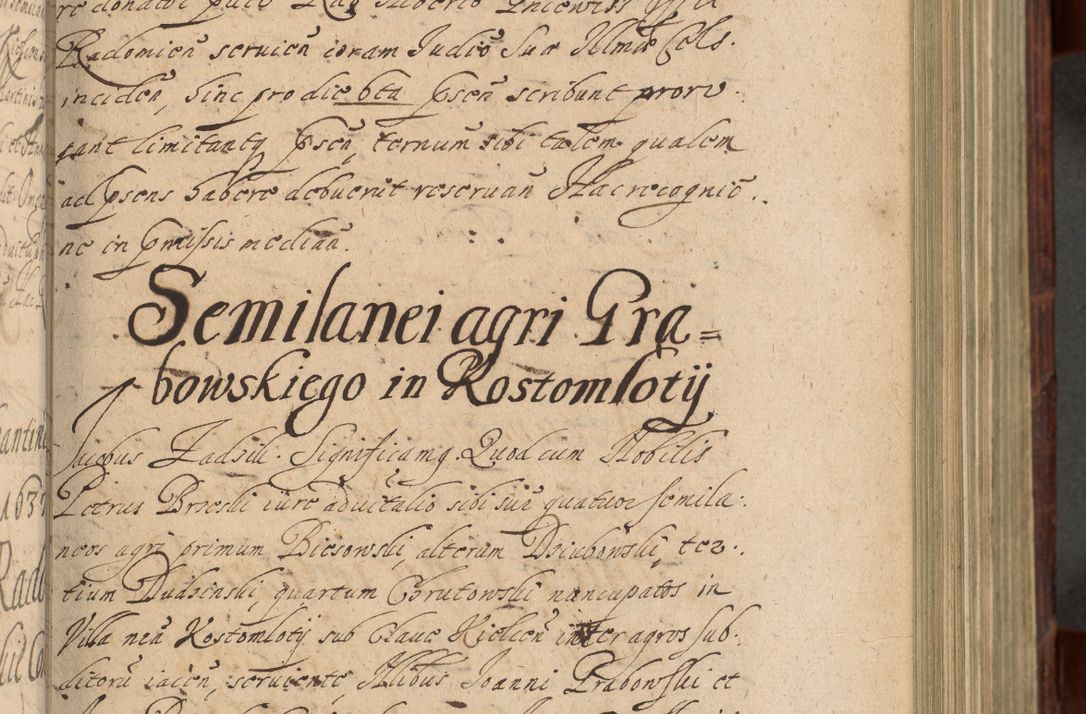 Radomień seruień coram Judiō Suæ Illmæ Cels.
inciden, hinc pro die 6ta psen̄ scribunt prorv.
gant limitantq psen̄, ternum sibi talem qualem
ad psens habere debuerit reseruan̄ Hac recognic̄ ..
ne in pmissis median̄.
Semilanei agri Gra=
bowskiego in Kostomlotij
Jacobus Zadzik. Significamq. Quod cum Nobilis
Petrus Brzeski iure aduitalio sibi sui quatuor semila.
neos agri primum Biesowski, alterum Dziubowski, ter..
tium Dudzinski, quartum Chrutowski nuncupatos in
Villa nrā Kostomlotij sub Claue Kielcen̄ inter agros sub.
ditorū iacen̄, seruiente, Nlibus Joanni Grabowski et